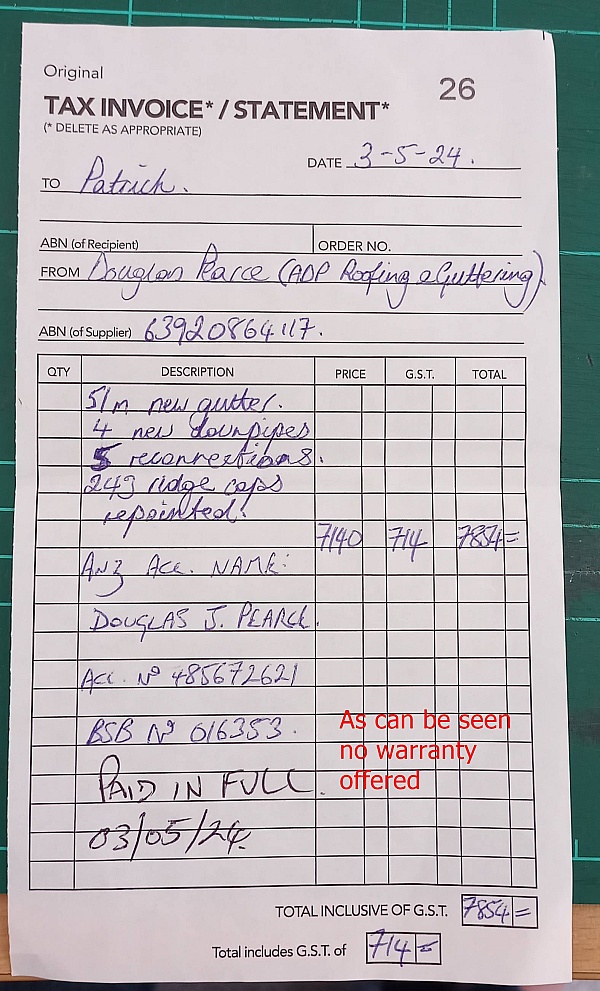 Original
26
TAX INVOICE* / STATEMENT*
(* DELETE AS APPROPRIATE)
DATE 3-5-24.
TO Patrick.
ABN (of Recipient) ORDER NO.
FROM Douglas Pearce (ADP Roofing & Guttering).
ABN (of Supplier) 63920864117.
QTY DESCRIPTION PRICE G.S.T. TOTAL
51m new gutter.
4 new downpipes
5 reconnections.
243 ridge caps
repointed.
7140 714 7854=
ANZ ACC. NAME:
DOUGLAS J. PEARCE.
Acc. Nº 485672621
BSB Nº 016353.
As can be seen
no warranty
offered
PAID IN FULL.
03/05/24.
TOTAL INCLUSIVE OF G.S.T. 7854=
Total includes G.S.T. of 714=